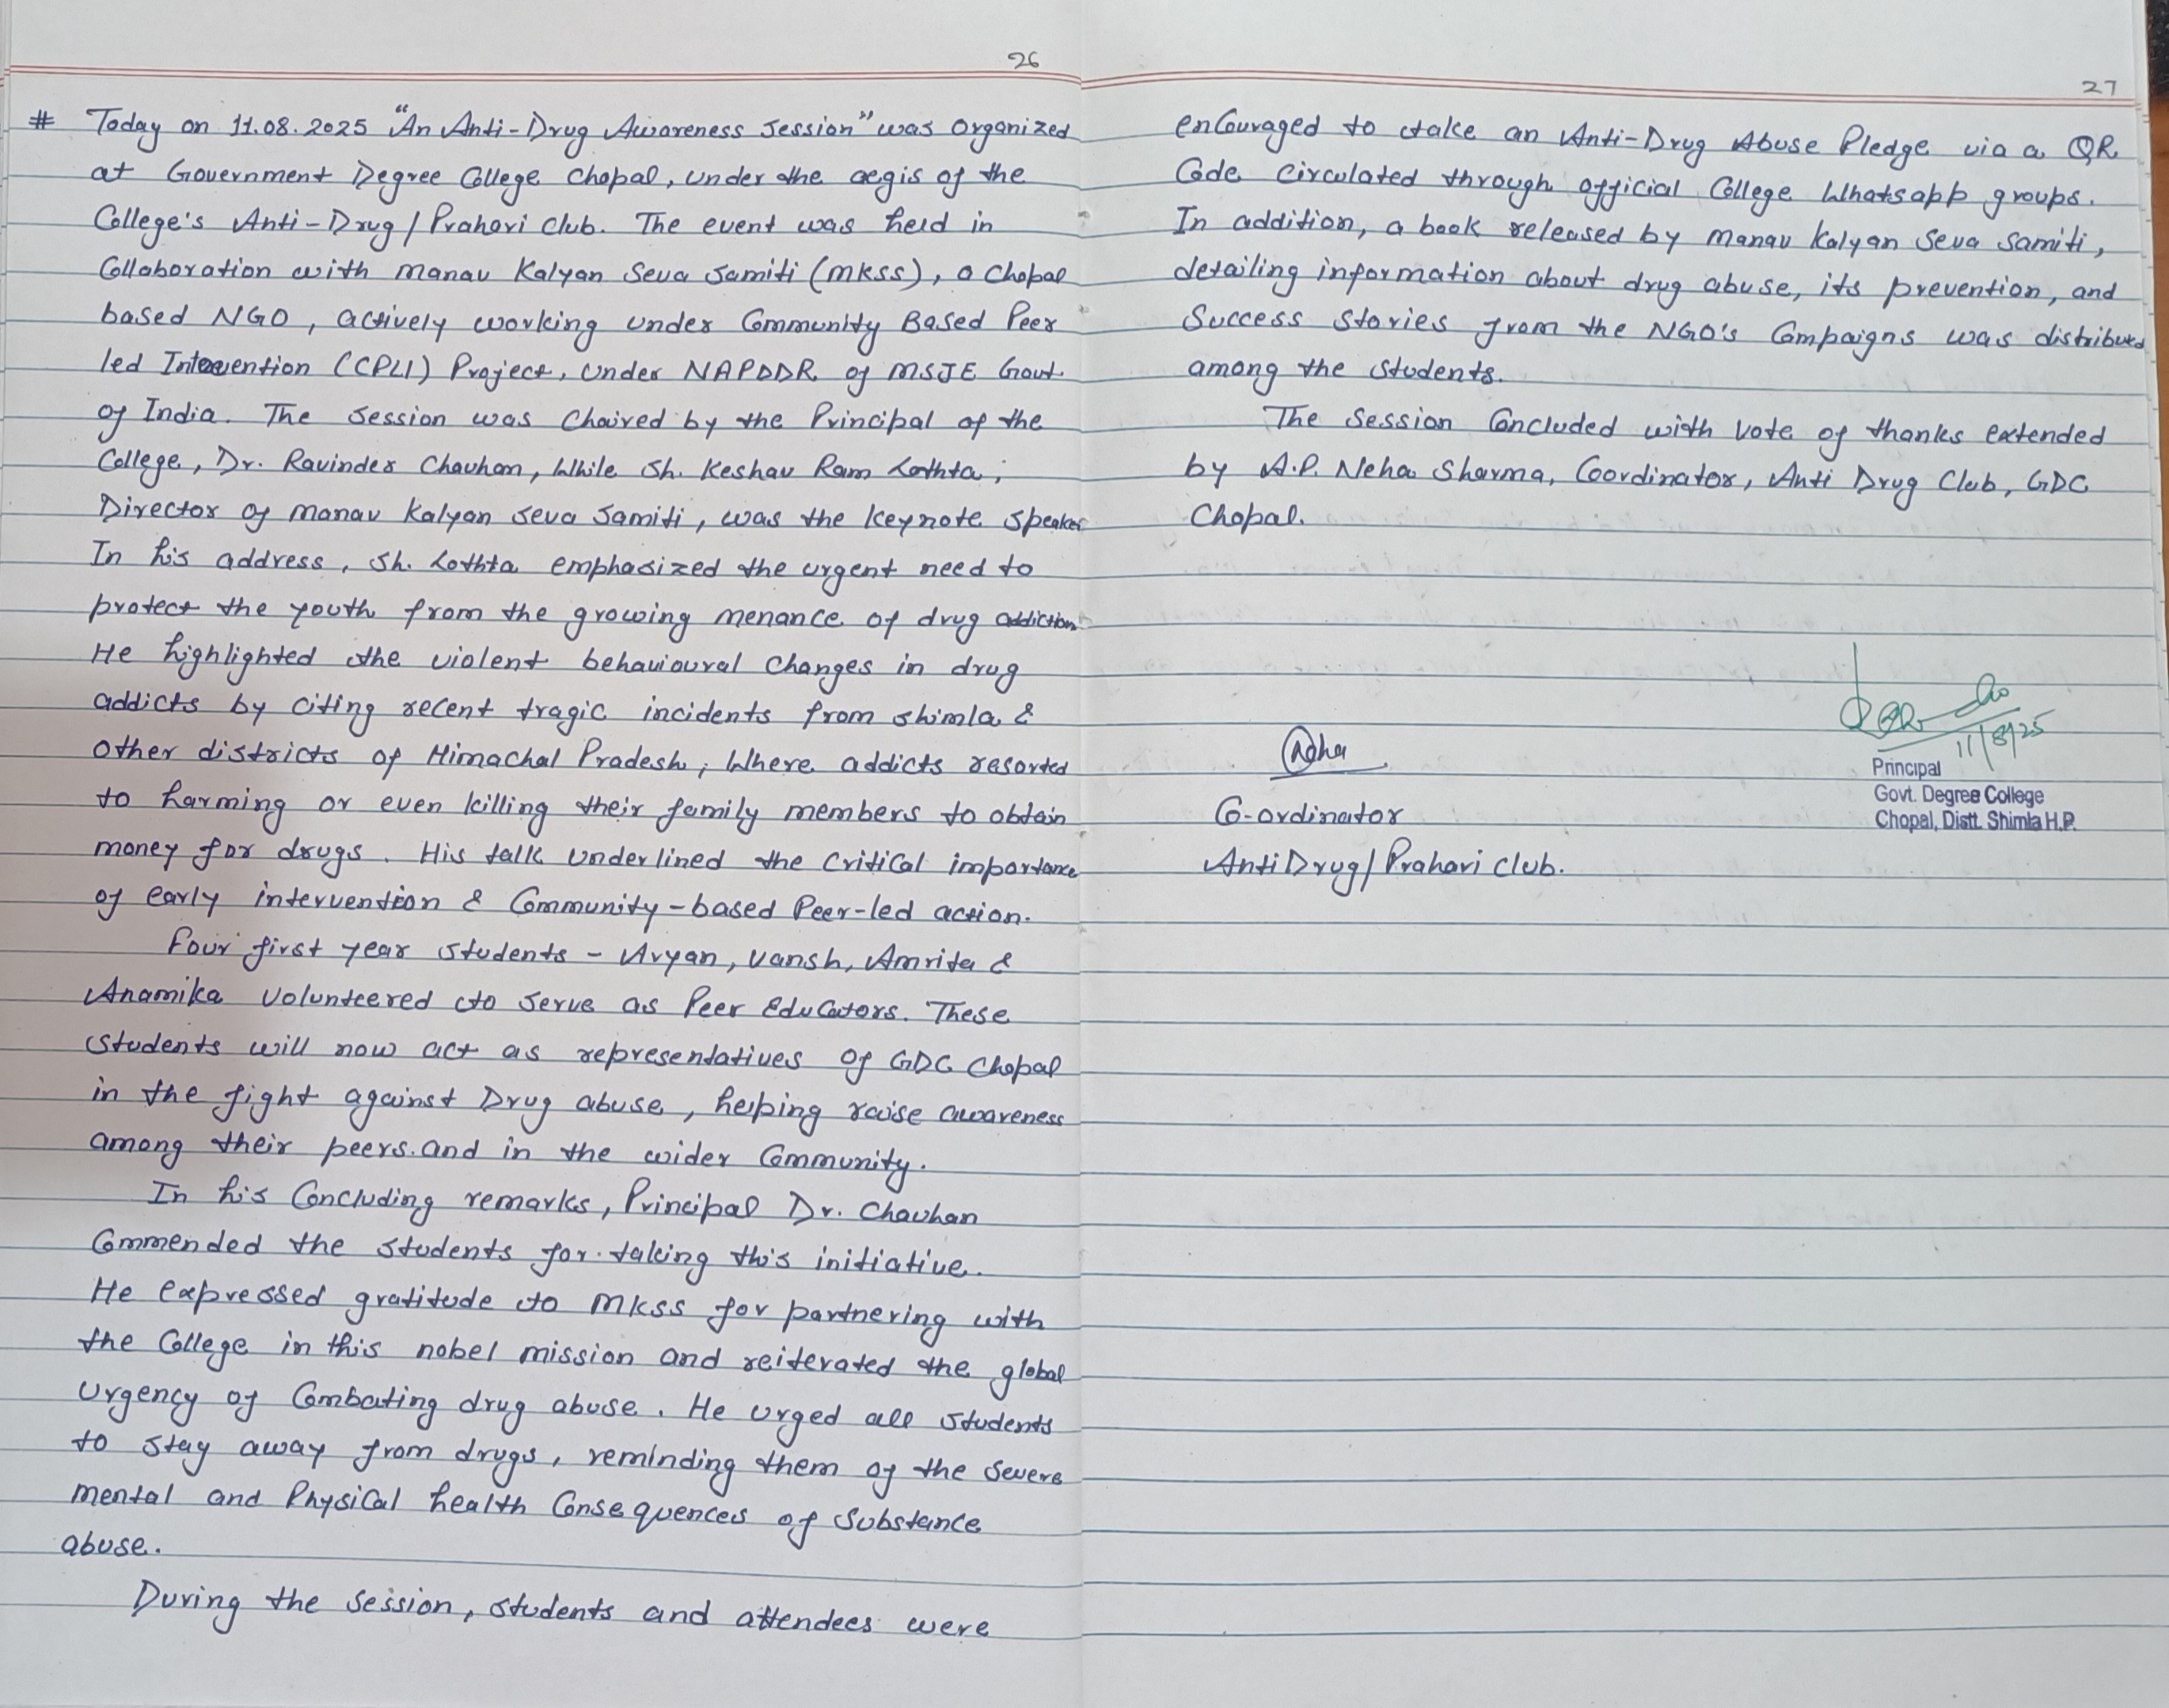 26
# Today on 11.08.2025 "An Anti-Drug Awareness Session" was Organized
at Government Degree College Chopal, under the aegis of the
College's Anti-Drug/Prahari Club. The event was held in
Collaboration with Manav Kalyan Seva Samiti (MKSS), a Chopal
based NGO, actively working under Community Based Peer
led Intervention (CPLI) Project, under NAPDDR of MSJE Govt.
of India. The session was Chaired by the Principal of the
College, Dr. Ravinder Chauhan, While Sh. Keshav Ram Lothta,
Director of Manav Kalyan Seva Samiti, was the keynote speaker
In his address, Sh. Lothta emphasized the urgent need to
protect the youth from the growing menance of drug addiction
He highlighted the violent behavioural changes in drug
addicts by citing recent tragic incidents from Shimla &
other districts of Himachal Pradesh, Where addicts resorted
to harming or even killing their family members to obtain
money for drugs. His talk underlined the critical importance
of early intervention & Community-based Peer-led action.
Four first year students - Aryan, Vansh, Amrita &
Anamika volunteered to serve as Peer Educators. These
students will now act as representatives of GDC Chopal
in the fight against Drug abuse, helping raise awareness
among their peers.and in the wider Community.
In his Concluding remarks, Principal Dr. Chauhan
Commended the students for taking this initiative.
He expressed gratitude to MKSS for partnering with
the College in this nobel mission and reiterated the global
urgency of Combating drug abuse. He urged all students
to stay away from drugs, reminding them of the severe
mental and Physical health Consequences of Substance
abuse.
During the session, students and attendees were
27
enCouraged to take an Anti-Drug Abuse Pledge via a QR
Code circulated through official College Whatsapp groups.
In addition, a book released by Manav Kalyan Seva Samiti,
detailing information about drug abuse, its prevention, and
Success stories from the NGO's Campaigns was distributed
among the students.
The Session Concluded with vote of thanks extended
by A.P. Neha Sharma, Coordinator, Anti Drug Club, GDC
Chopal.
Neha
Co-ordinator
Anti Drug/Prahari Club.
11/8/25
Principal
Govt. Degree College
Chopal, Distt. Shimla H.P.